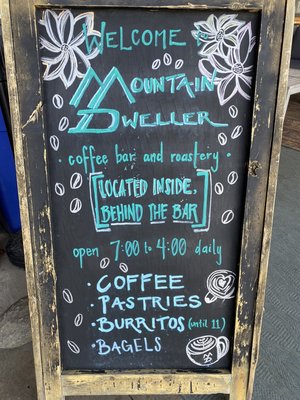 WELCOME
MOUNTAIN
DWELLER
• coffee bar and roastery •
[LOCATED INSIDE,
BEHIND THE BAR]
open 7:00 to 4:00 daily
• COFFEE
• PASTRIES
• BURRITOS (until 11)
• BAGELS